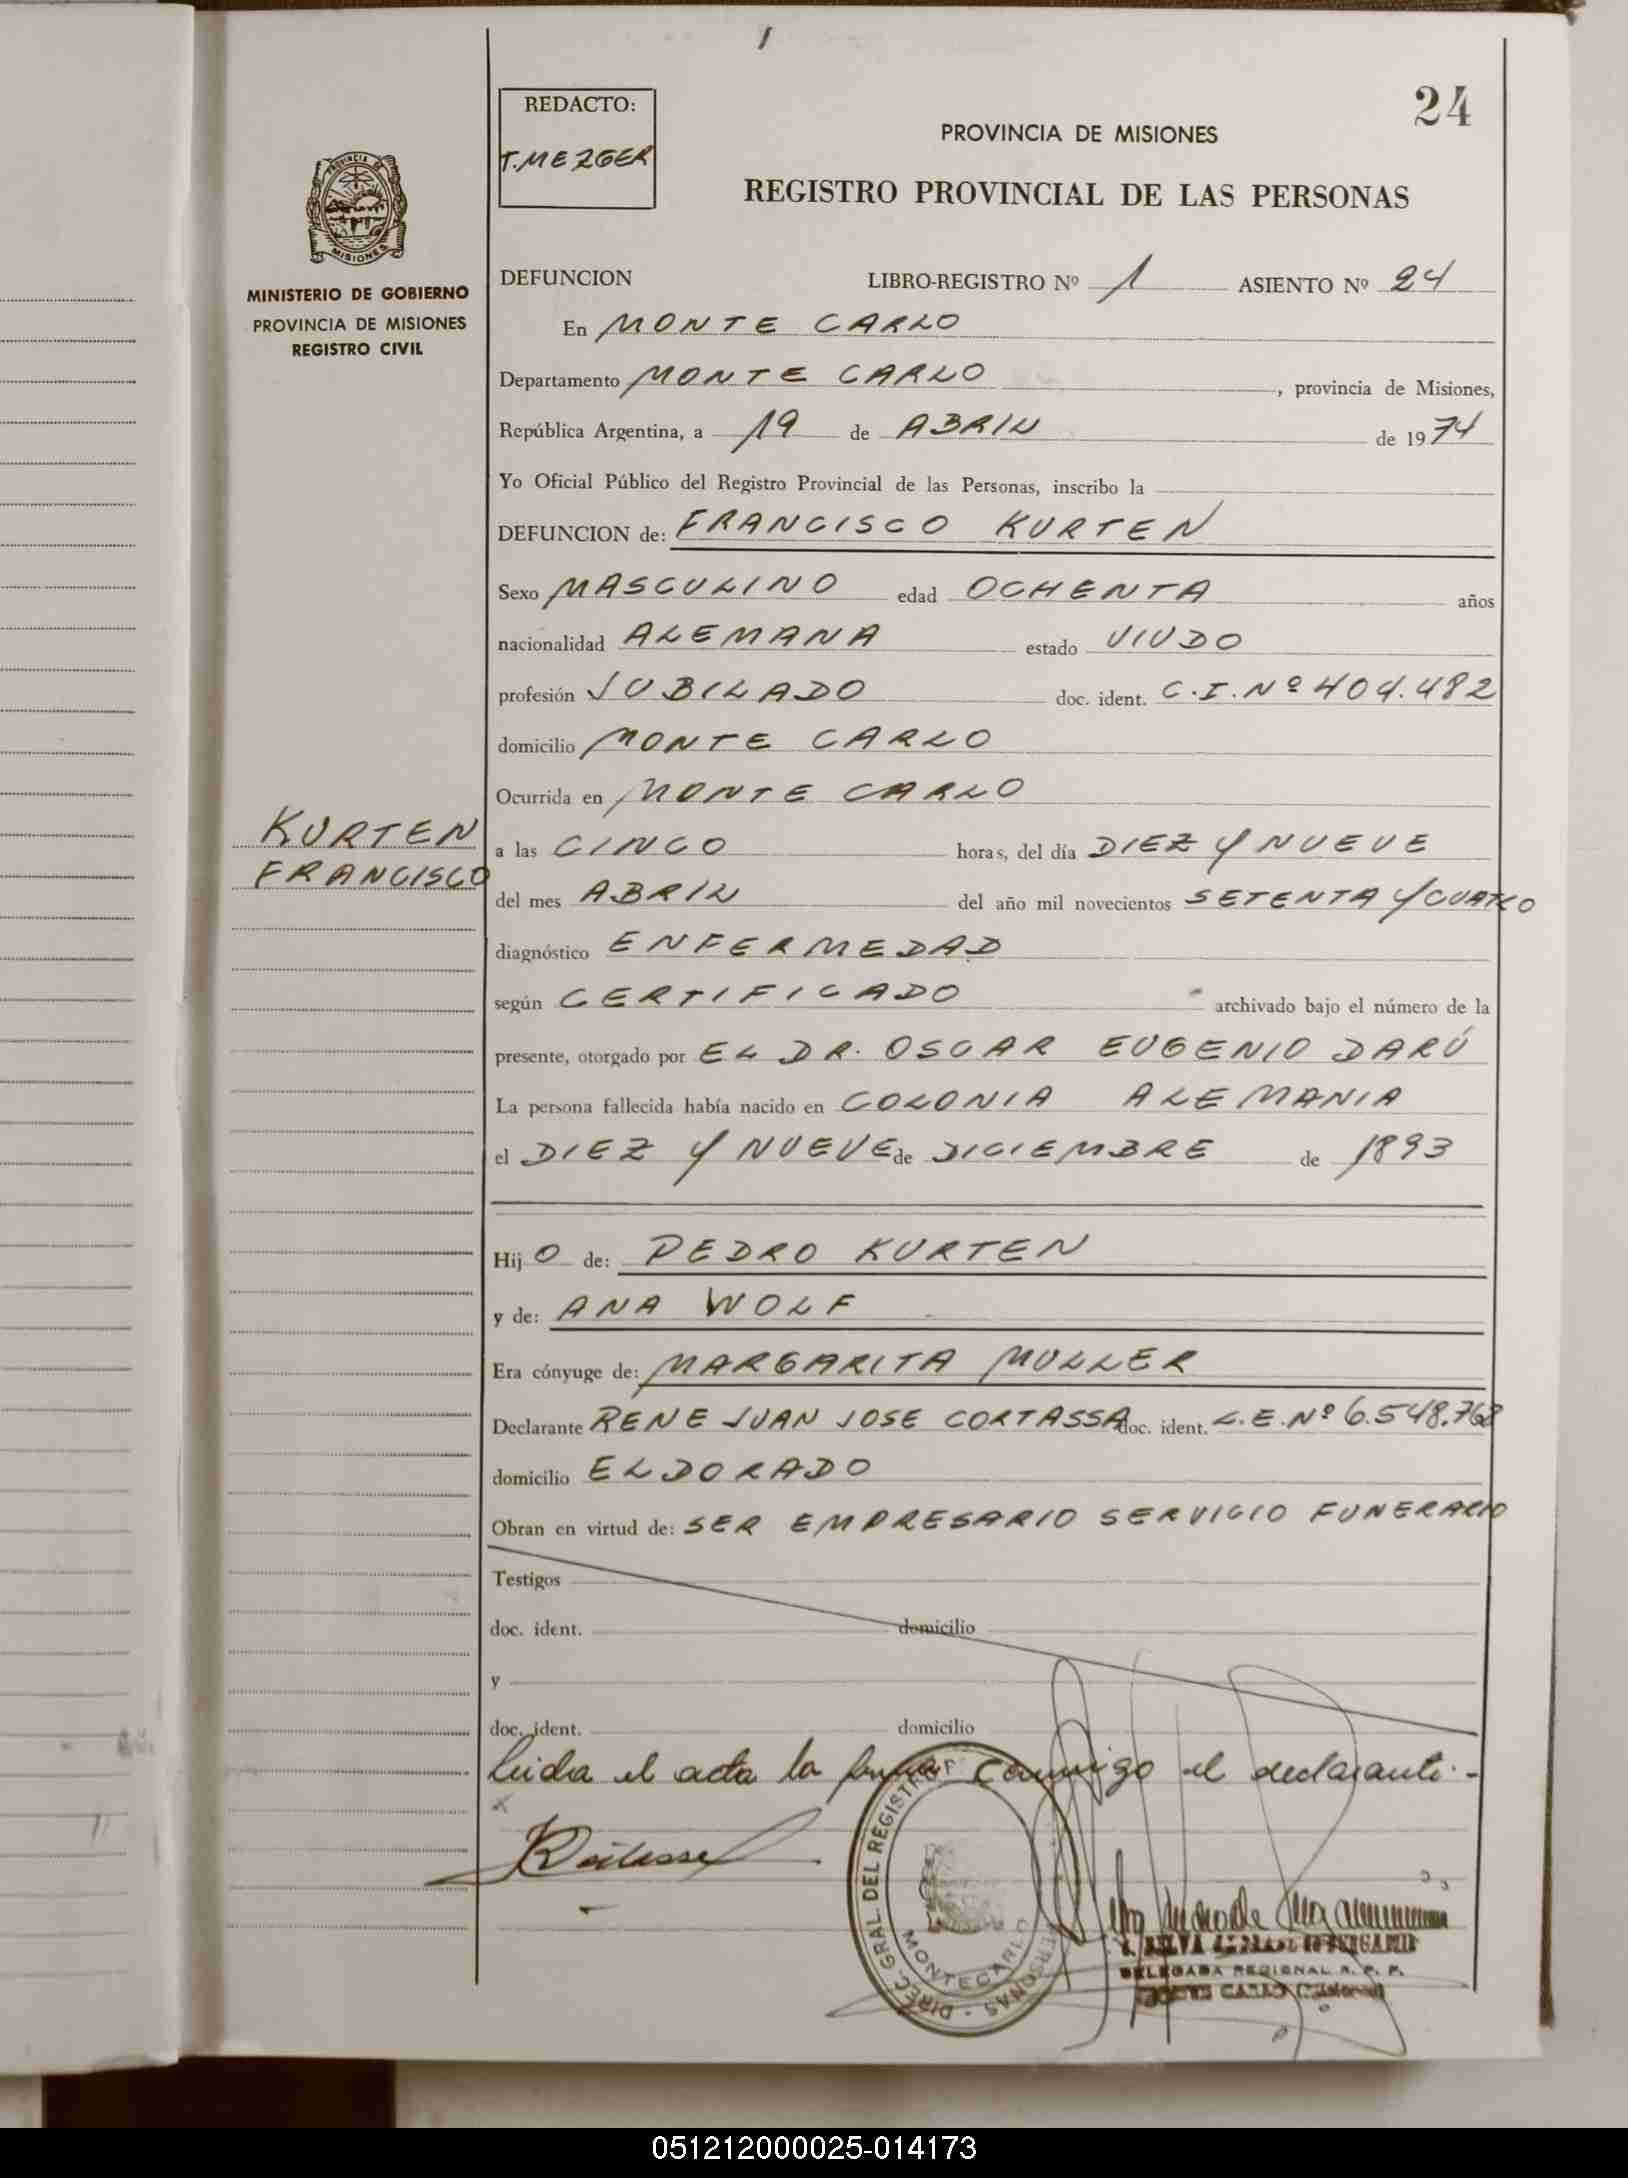 1
REDACTO:
T. MEZGER
24
PROVINCIA DE MISIONES
REGISTRO PROVINCIAL DE LAS PERSONAS
PROVINCIA DE
MISIONES
MINISTERIO DE GOBIERNO
PROVINCIA DE MISIONES
REGISTRO CIVIL
DEFUNCION LIBRO-REGISTRO Nº 1 ASIENTO Nº 24
En MONTE CARLO
Departamento MONTE CARLO, provincia de Misiones,
República Argentina, a 19 de ABRIL de 1974
Yo Oficial Público del Registro Provincial de las Personas, inscribo la
DEFUNCION de: FRANCISCO KURTEN
Sexo MASCULINO edad OCHENTA años
nacionalidad ALEMANA estado VIUDO
profesión JUBILADO doc. ident. C.I.Nº 404.482
domicilio MONTE CARLO
Ocurrida en MONTE CARLO
KURTEN
FRANCISCO
a las CINCO horas, del día DIEZ Y NUEVE
del mes ABRIL del año mil novecientos SETENTA Y CUATRO
diagnóstico ENFERMEDAD
según CERTIFICADO archivado bajo el número de la
presente, otorgado por EL DR. OSCAR EUGENIO DARÚ
La persona fallecida había nacido en COLONIA ALEMANIA
el DIEZ Y NUEVE de DICIEMBRE de 1893
Hij O de: PEDRO KURTEN
y de: ANA WOLF
Era cónyuge de: MARGARITA MULLER
Declarante RENE JUAN JOSE CORTASSA doc. ident. L.E.Nº 6.548.768
domicilio ELDORADO
Obran en virtud de: SER EMPRESARIO SERVICIO FUNERARIO
Testigos
doc. ident. domicilio
y
doc. ident. domicilio
Leida el acta la firma conmigo el declarante.-
DIREC. GRAL. DEL REGISTRO PERSONAS
MONTECARLO
DELEGADA REGIONAL R. P. P.
051212000025-014173